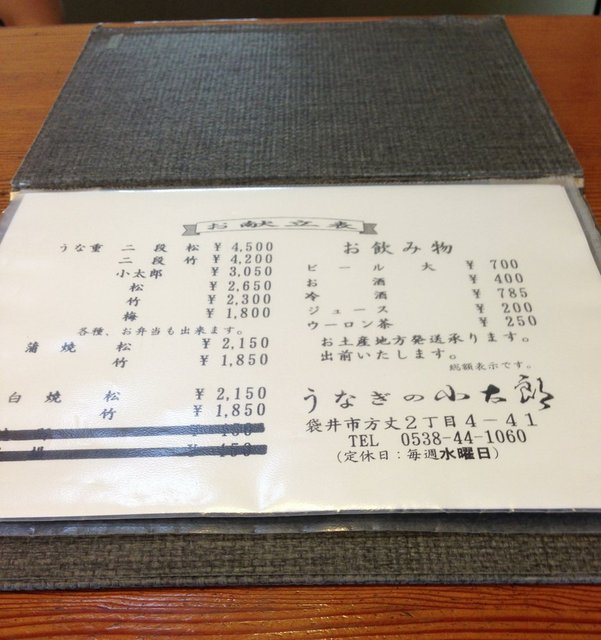 お献立表
うな重 二段 松 ¥4,500
二段 竹 ¥4,200
小太郎 ¥3,050
松 ¥2,650
竹 ¥2,300
梅 ¥1,800
各種、お弁当も出来ます。
蒲焼 松 ¥2,150
竹 ¥1,850
白焼 松 ¥2,150
竹 ¥1,850
¥450
¥450
お飲み物
ビール 大 ¥700
お酒 ¥400
冷酒 ¥785
ジュース ¥200
ウーロン茶 ¥250
お土産地方発送承ります。
出前いたします。
総額表示です。
うなぎの小太郎
袋井市方丈2丁目4-41
TEL 0538-44-1060
(定休日:毎週水曜日)